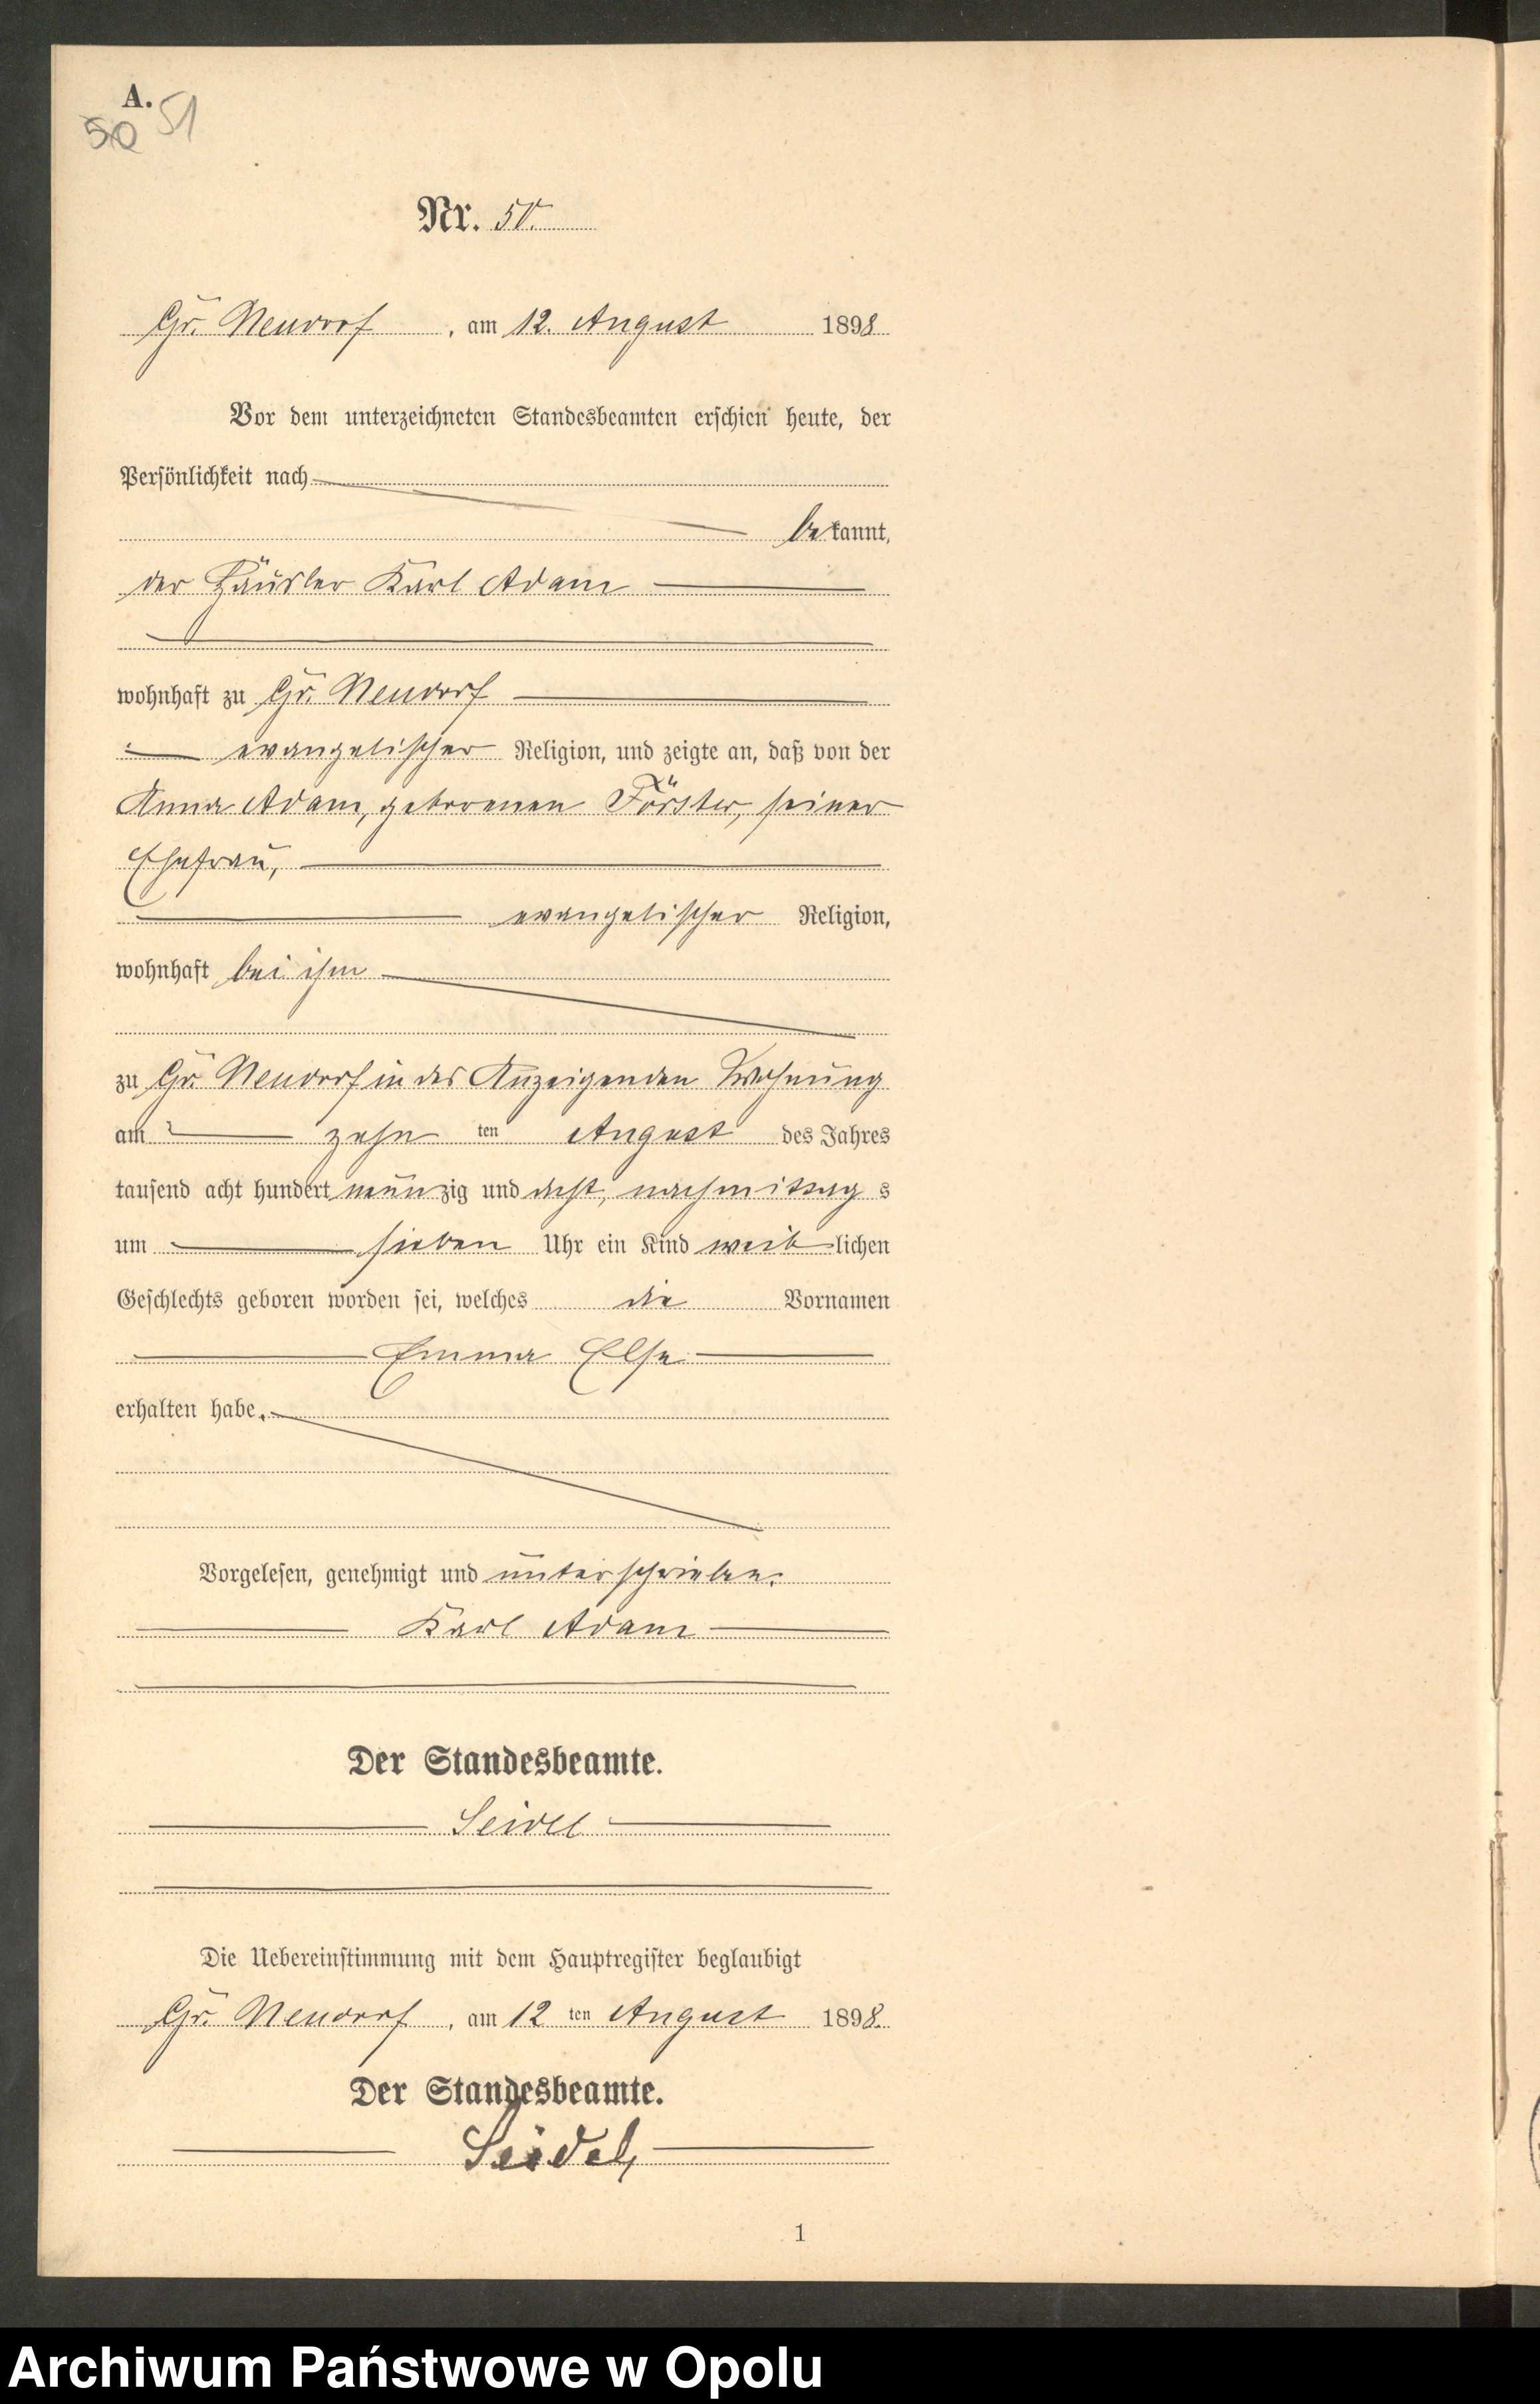 A.
50 51
Nr. 50.
Gr. Neudorf, am 12. August 1898
Vor dem unterzeichneten Standesbeamten erschien heute, der
Persönlichkeit nach
bekannt,
der Häusler Karl Adam
wohnhaft zu Gr. Neudorf
evangelischer Religion, und zeigte an, daß von der
Anna Adam, geborenen Förster, seiner
Ehefrau,
evangelischer Religion,
wohnhaft bei ihm
zu Gr. Neudorf in des Anzeigenden Wohnung
am zehn ten August des Jahres
tausend acht hundert neunzig und acht, nachmittags
um sieben Uhr ein Kind weiblichen
Geschlechts geboren worden sei, welches die Vornamen
Emma Else
erhalten habe.
Vorgelesen, genehmigt und unterschrieben.
Karl Adam
Der Standesbeamte.
Seidel
Die Uebereinstimmung mit dem Hauptregister beglaubigt
Gr. Neudorf, am 12 ten August 1898.
Der Standesbeamte.
Seidel
1
Archiwum Państwowe w Opolu